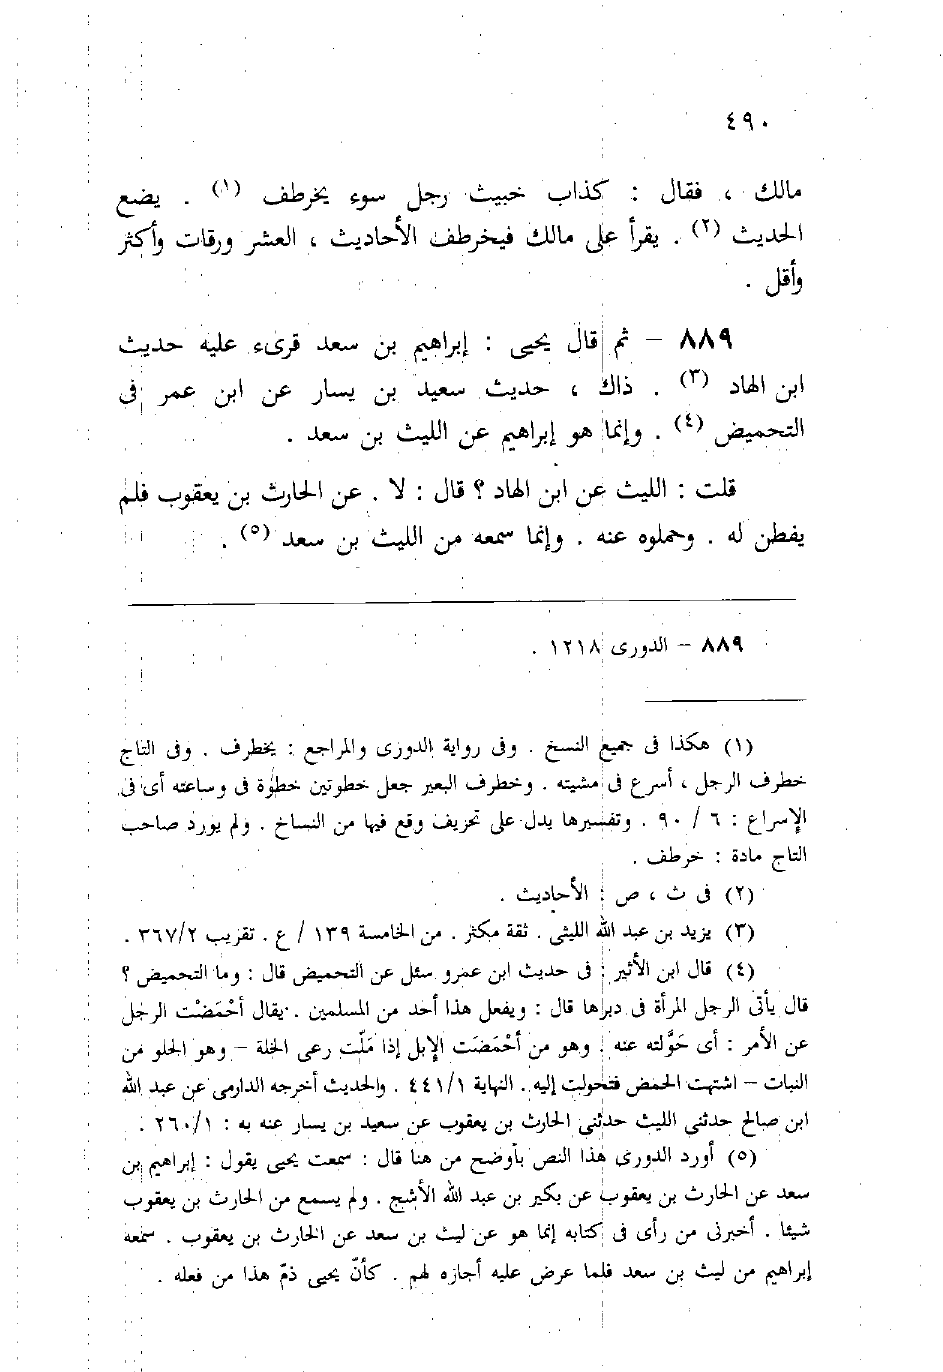 ٤٩٠
مالك ، فقال : كذاب خبيث رجل سوء يخرطف (١) . يضع
الحديث (٢) . يقرأ على مالك فيخرطف الأحاديث ، العشر ورقات وأكثر
وأقل .
٨٨٩ – ثم قال يحيى : إبراهيم بن سعد قرىء عليه حديث
ابن الهاد (٣) . ذاك ، حديث سعيد بن يسار عن ابن عمر فى
التحميض (٤) . وإنما هو إبراهيم عن الليث بن سعد .
قلت : الليث عن ابن الهاد ؟ قال : لا . عن الحارث بن يعقوب فلم
يفطن له . وحملوه عنه . وإنما سمعه من الليث بن سعد (٥) .
٨٨٩ – الدورى ١٢١٨ .
(١) هكذا فى جميع النسخ . وفى رواية الدورى والمراجع : يخطرف . وفى التاج
خطرف الرجل ، أسرع فى مشيته . وخطرف البعير جعل خطوتين خطوة فى وساعته أى فى
الإسراع : ٦ / ٩٠ . وتفسيرها يدل على تحريف وقع فيها من النساخ . ولم يورد صاحب
التاج مادة : خرطف .
(٢) فى ث ، ص : الأحاديث .
(٣) يزيد بن عبد الله الليثى . ثقة مكثر . من الخامسة ١٣٩ / ع . تقريب ٣٦٧/٢ .
(٤) قال ابن الأثير : فى حديث ابن عمرو سئل عن التحميض قال : وما التحميض ؟
قال يأتى الرجل المرأة فى دبرها قال : ويفعل هذا أحد من المسلمين . يقال أحْمَضْت الرجل
عن الأمر : أى حَوَّلته عنه . وهو من أحْمَضَت الإبل إذا مَلّت رعى الخلة – وهو الحلو من
النبات – اشتهت الحمض فتحولت إليه . النهاية ٤٤١/١ . والحديث أخرجه الدارمى عن عبد الله
ابن صالح حدثنى الليث حدثنى الحارث بن يعقوب عن سعيد بن يسار عنه به : ٢٦٠/١ .
(٥) أورد الدورى هذا النص بأوضح من هنا قال : سمعت يحيى يقول : إبراهيم بن
سعد عن الحارث بن يعقوب عن بكير بن عبد الله الأشج . ولم يسمع من الحارث بن يعقوب
شيئا . أخبرنى من رأى فى كتابه إنما هو عن ليث بن سعد عن الحارث بن يعقوب . سمعه
إبراهيم من ليث بن سعد فلما عرض عليه أجازه لهم . كأنّ يحيى ذمّ هذا من فعله .